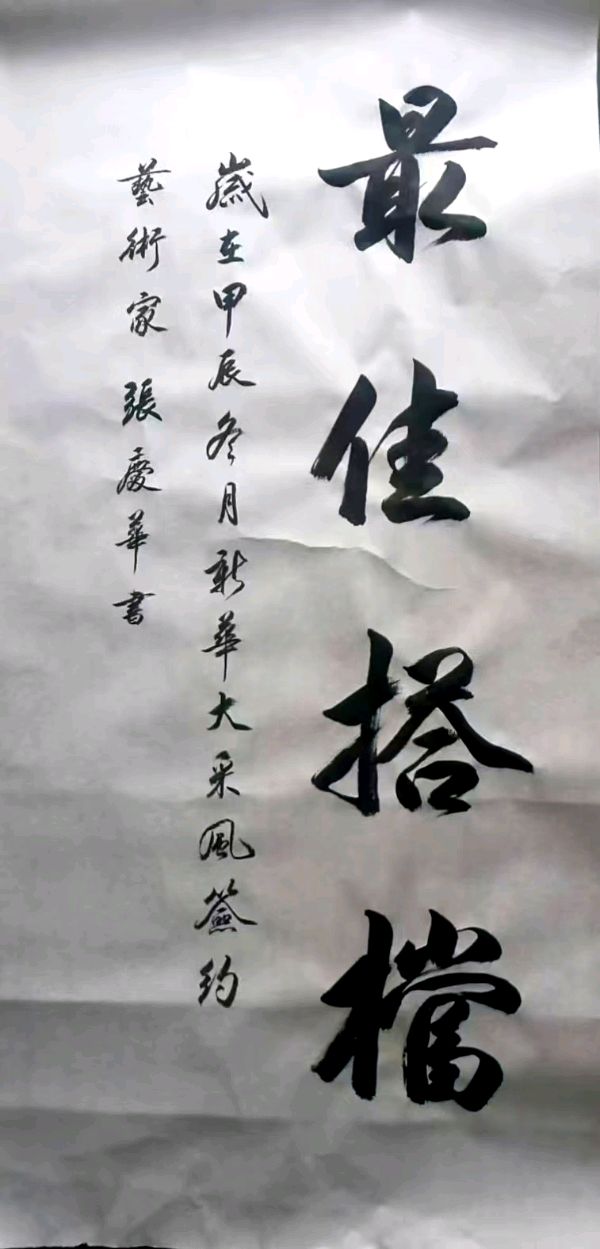 最佳搭檔
歲在甲辰冬月新華大采風簽约
藝術家張慶華書